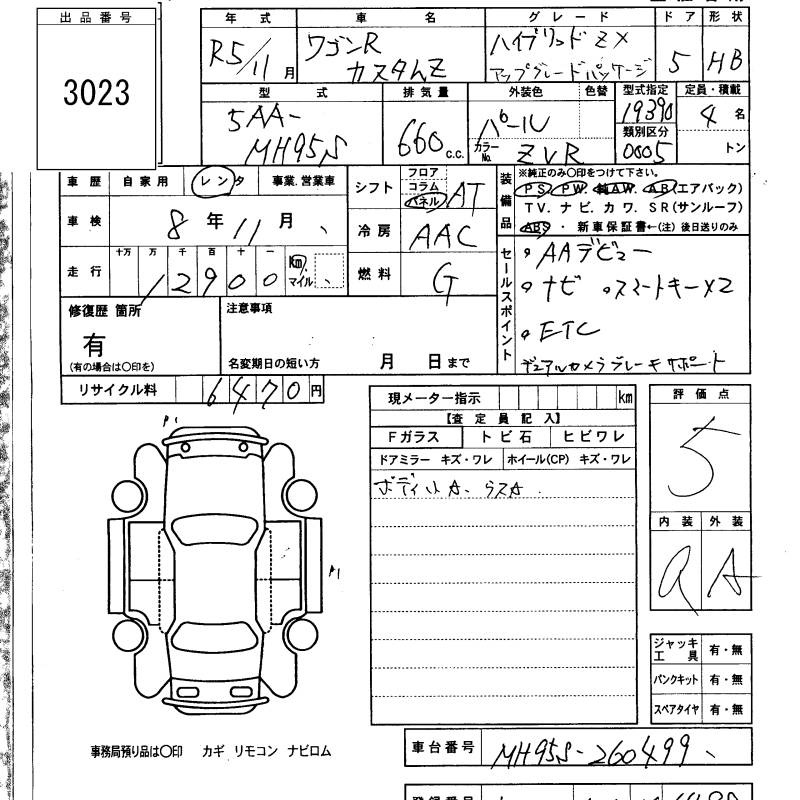 出品番号
3023
年式
R5/11月
車名
ワゴンR
カスタムZ
グレード
ハイブリッドZX
アップグレードパッケージ
ドア
5
形状
HB
型式
5AA-
MH95S
排気量
660c.c.
外装色
パール
色替
カラーNo.
ZVR
型式指定
19390
類別区分
0005
定員・積載
4名
トン
車歴
自家用
レンタ
事業.営業車
車検
8年11月
走行
十万 万 千 百 十 一
12900
Km
マイル
シフト
フロア
コラム
パネル
AT
冷房
AAC
燃料
G
装備品
※純正のみ〇印をつけて下さい。
PS. PW. 純AW. AB(エアバック)
TV. ナビ. カワ. SR(サンルーフ)
ABS ・ 新車保証書←(注) 後日送りのみ
セールスポイント
AAデビュー
ナビ スマートキー×2
ETC
デュアルカメラブレーキサポート
修復歴 箇所
有
(有の場合は〇印を)
注意事項
名変期日の短い方 月 日まで
リサイクル料
6470円
現メーター指示
km
【査定員記入】
Fガラス
トビ石
ヒビワレ
ドアミラー キズ・ワレ
ホイール(CP) キズ・ワレ
評価点
5
内装
外装
A
A1
ジャッキ
工具
有・無
パンクキット
有・無
スペアタイヤ
有・無
事務局預り品は〇印 カギ リモコン ナビロム
車台番号
MH95S-260499